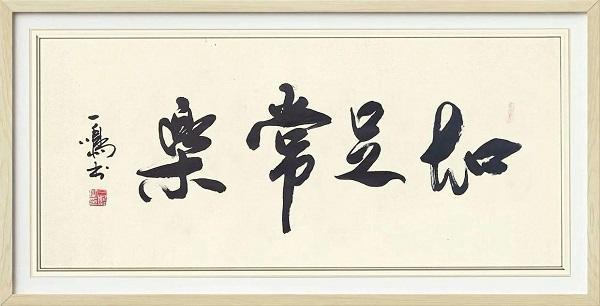 知足常樂
一鳴书